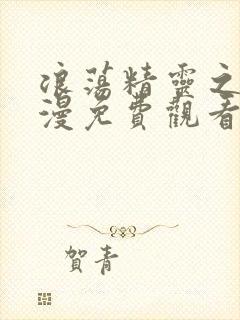 浪蕩精靈之
漫免費觀看
賀青